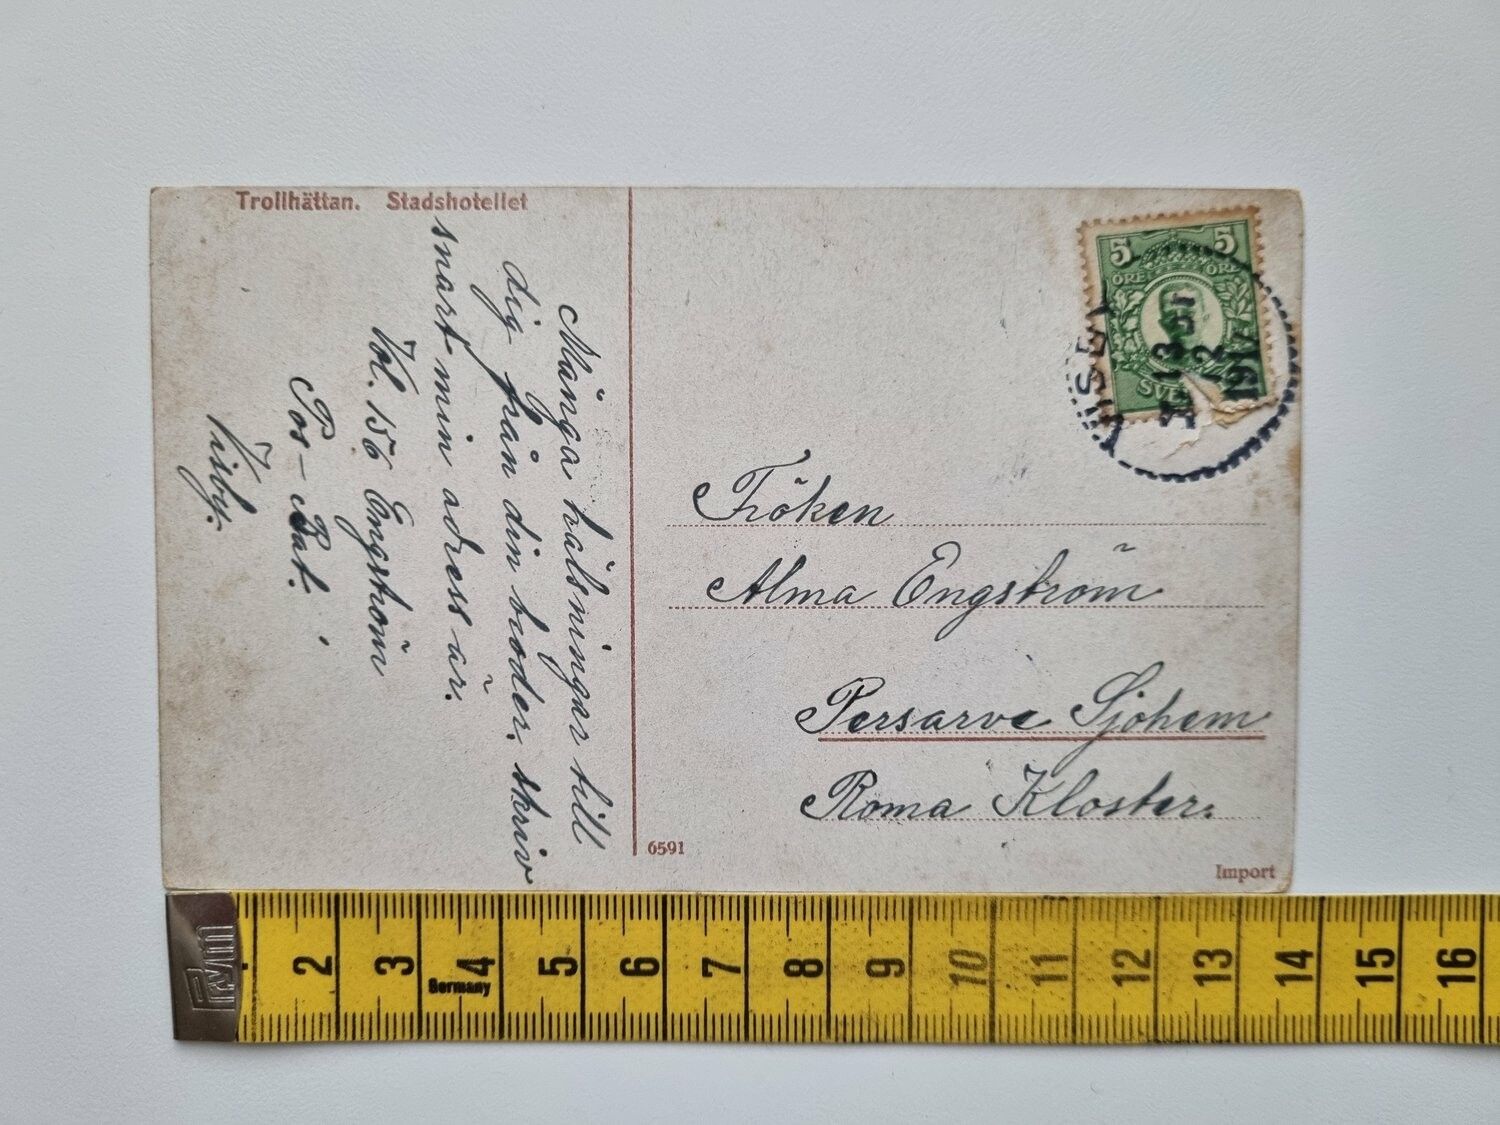 Trollhättan. Stadshotellet
Många hälsningar till
dig från din broder. skriv
snart min adress är.
Vol. 156 Engström
Pos-Bat.
Visby.
5 5
ÖRE ÖRE
VISBY
13
2
191
Fröken
Alma Engström
Persarve Sjöhem
Roma Kloster.
6591
Import
2 3 4 5 6 7 8 9 10 11 12 13 14 15 16
Germany